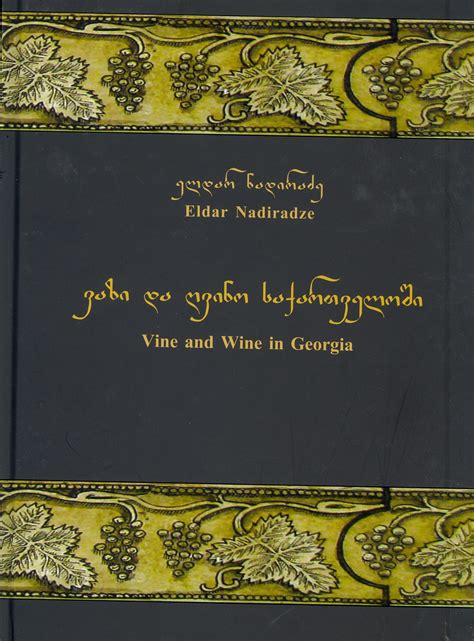 ელდარ ნადირაძე
Eldar Nadiradze
ვაზი და ღვინო საქართველოში
Vine and Wine in Georgia